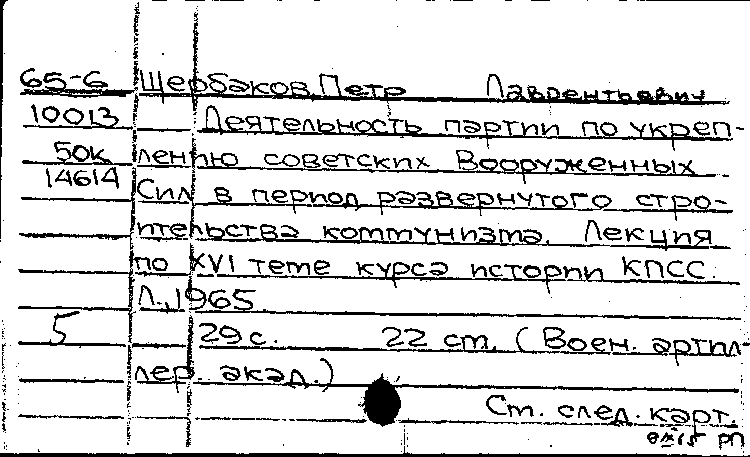 65-6 Щербаков, Петр Лаврентьевич
10013 Деятельность партии по укреп-
50к лению советских Вооруженных
14614 Сил в период развернутого стро-
ительства коммунизма. Лекция
по XVI теме курса истории КПСС.
Л., 1965.
5 29 с. 22 см. (Воен. артил-
лер. акад.)
Ст. след. карт.
РП